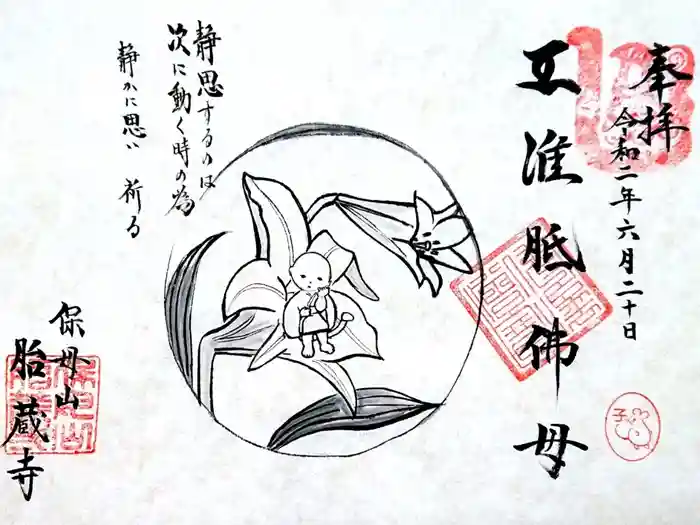 奉拝
令和二年六月二十日
准胝佛母
静思するのは
次に動く時の為
静かに思い 祈る
保母山
胎蔵寺
子